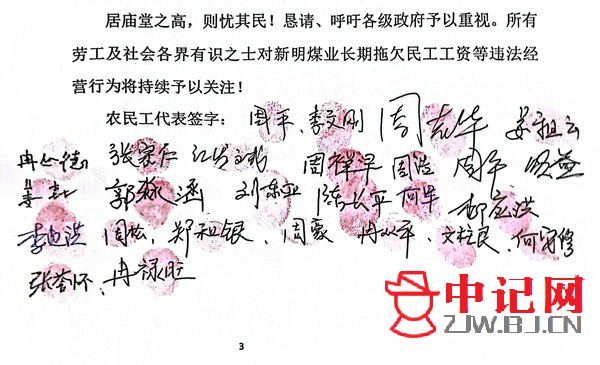 居庙堂之高，则忧其民！恳请、呼吁各级政府予以重视。所有
劳工及社会各界有识之士对新明煤业长期拖欠民工工资等违法经
营行为将持续予以关注！
农民工代表签字：周平、李文刚 周志华 姜祖云
张家仁 周祥平 周浩 周华
郭 刘东亚 陈长平 何华 郁应洪
李 洪 周松、郑和银、周蒙 冉 平、文柱民、何守修
张荃怀、冉禄旺
中记网
ZJW.BJ.CN
3